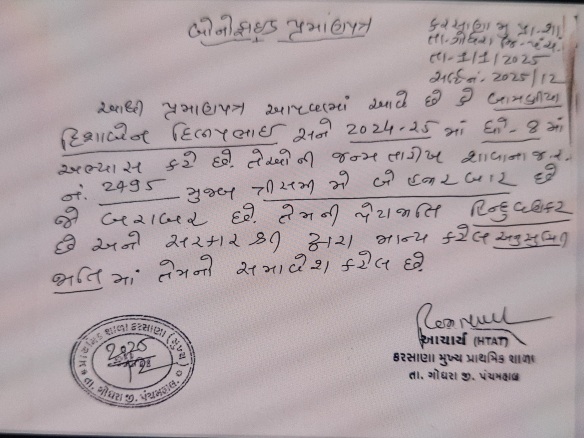 બોનોફાઇડ પ્રમાણપત્ર
કરસાણા મુ. પ્રા. શાળા
તા-ગોધરા જિ-પંચ.
તા-1/1/2025
સર્ટીનં. 2025/12
આથી પ્રમાણપત્ર આપવામાં આવે છે કે બામણીયા
દિશાબેન દિલપભાઇ સને 2024-25 માં ધો-8 માં
અભ્યાસ કરે છે. તેઓની જન્મ તારીખ શાળાના જ.ર.
નં. 2495 મુજબ ત્રીસમી મે બે હજાર બાર છે
જે બરાબર છે. તેમની પેટાજાતિ હિન્દુ વણકર
છે અને સરકાર શ્રી દ્વારા માન્ય કરેલ અનુસુચિત
જાતિ માં તેમનો સમાવેશ કરેલ છે.
પ્રાથમિક શાળા કરસાણા (મુખ્ય)
2025
12
તા. ગોધરા જી. પંચમહાલ.
આચાર્ય (HTAT)
કરસાણા મુખ્ય પ્રાથમિક શાળા
તા. ગોધરા જી. પંચમહાલ